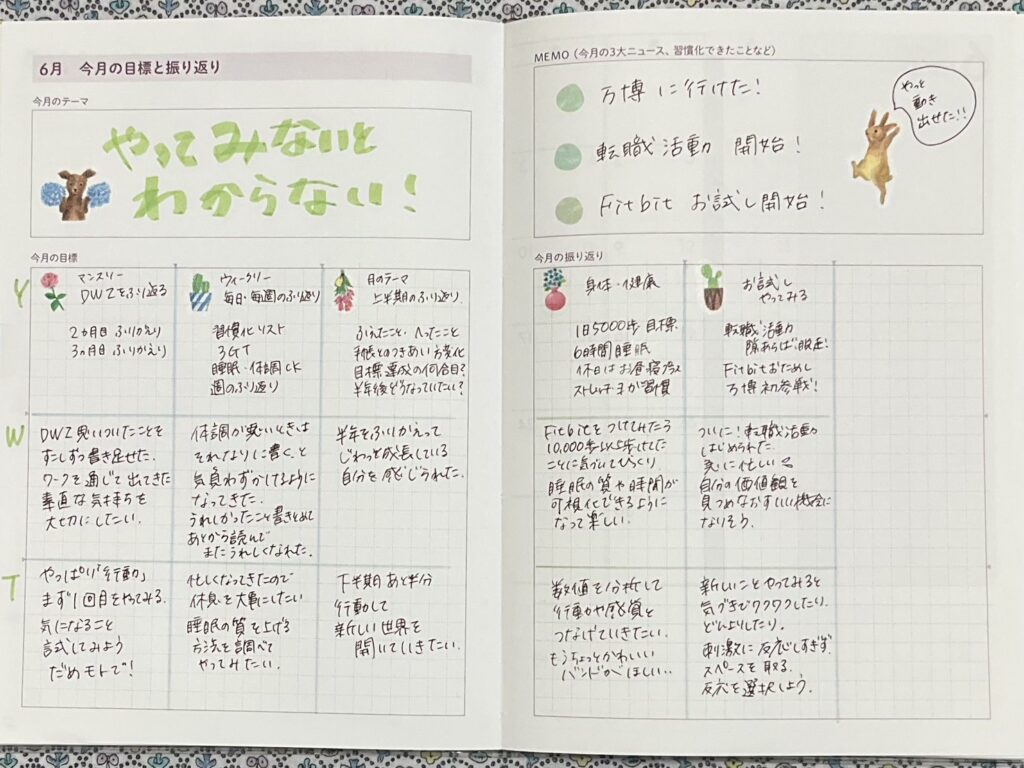 6月 今月の目標と振り返り
今月のテーマ
やってみないと
わからない!
今月の目標
Y
マンスリー
DWZをふり返る
2ヵ月目 ふりかえり
3ヵ月目 ふりかえり
ウィークリー
毎日・毎週のふり返り
習慣化リスト
3GT
睡眠・体調CK
週のふり返り
月のテーマ
上半期のふり返り
ふえたこと、へったこと
手帳とのつきあい方変化
目標達成の何合目?
半年後どうなっていたい?
W
DWZ思いついたことを
すこしずつ書き足せた。
ワークを通じて出てきた
素直な気持ちを
大切にしたい.
体調が悪いときは
それなりに書く、と
気負わずかけるように
なってきた.
うれしかったこと書きとめて
あとから読んで
またうれしくなれた.
半年をふりかえって
じわっと成長している
自分を感じられた.
T
やっぱり「行動」
まず1回目をやってみる.
気になること
試してみよう
だめモトで!
忙しくなってきたので
休息を大事にしたい
睡眠の質を上げる
方法を調べて
やってみたい.
下半期あと半分
行動して
新しい世界を
開いていきたい.
MEMO(今月の3大ニュース、習慣化できたことなど)
万博に行けた!
転職活動 開始!
Fitbit お試し開始!
やっと
動き
出せた!!
今月の振り返り
身体・健康
1日5000歩 目標
6時間睡眠
休日はお昼寝プラス
ストレッチヨガ習慣
お試し
やってみる
転職活動
隙あらば脱走!
Fitbitおためし
万博初参戦!
Fitbitをつけてみたら
10,000歩以上歩けてた
ことに気づいてびっくり
睡眠の質や時間が
可視化できるように
なって楽しい.
ついに!転職活動
はじめられた.
急に忙しい
自分の価値観を
見つめなおすいい機会に
なりそう.
数値を分析して
行動や感質と
つなげていきたい.
もうちょっとかわいい
バンドがほしい..
新しいことやってみると
気づきでワクワクしたり.
どんよりしたり.
刺激に反応しすぎず.
スペースを取る.
反応を選択しよう.